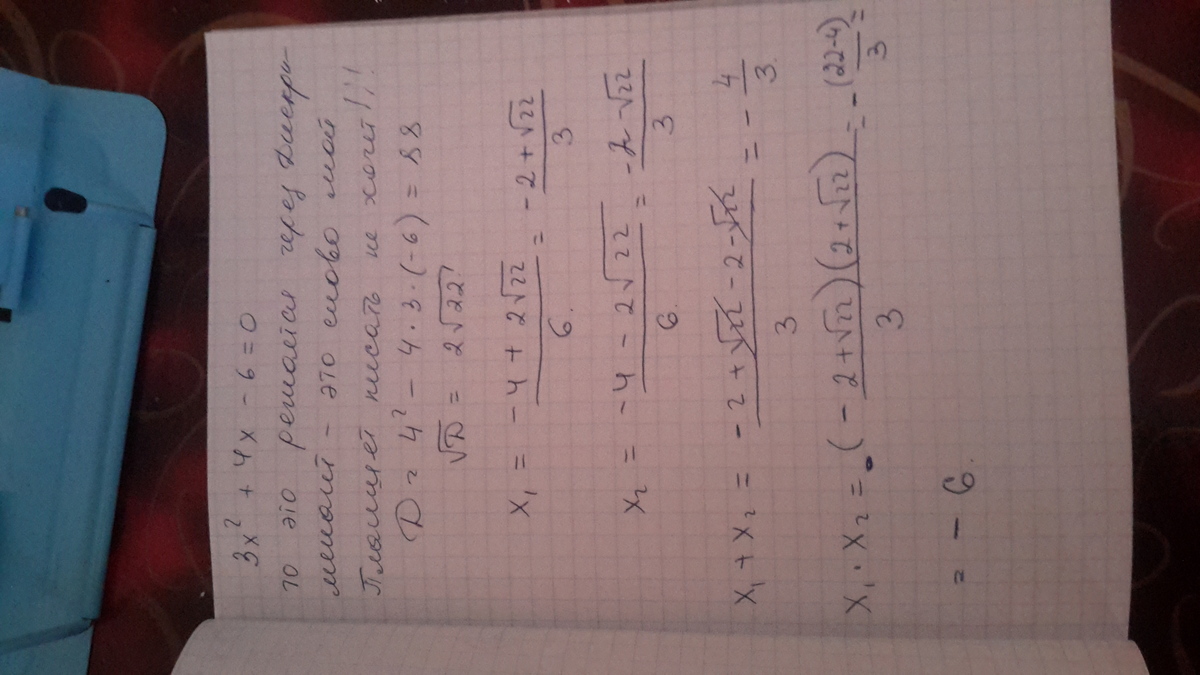 3x² + 4x - 6 = 0
то это решается через дискри-
минант - это слово мой
Планшет писать не хочет!!!
D = 4² - 4·3·(-6) = 88
√D = 2√22
x₁ = (-4 + 2√22)/6 = (-2 + √22)/3
x₂ = (-4 - 2√22)/6 = (-2 - √22)/3
x₁ + x₂ = (-2 + √22 - 2 - √22)/3 = -4/3
x₁ · x₂ = (-2 + √22)(2 + √22)/3 = -(22-4)/3 =
= -6